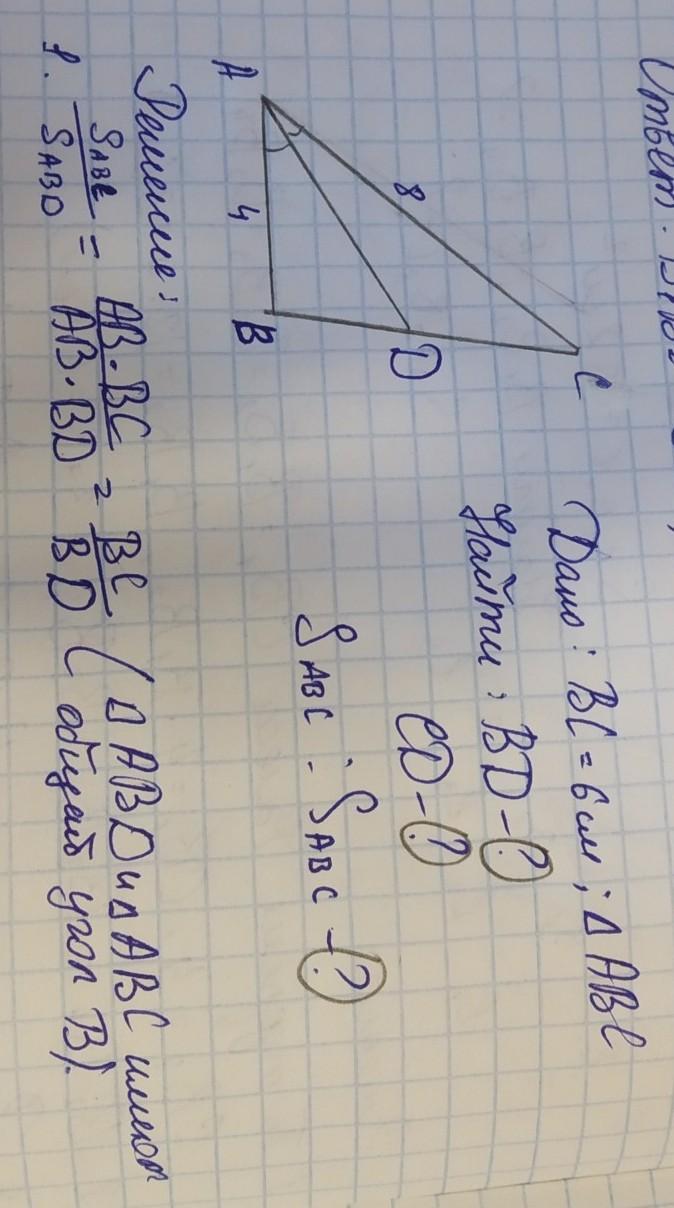 Ответ:
Дано: BC = 6 см; Δ ABC
Найти: BD - ?
CD - ?
S ABC : S ABC - ?
C
8
D
A
4
B
Решение:
1. S ABC / S ABD = AB · BC / AB · BD = BC / BD ( Δ ABD и Δ ABC имеют
общий угол B).